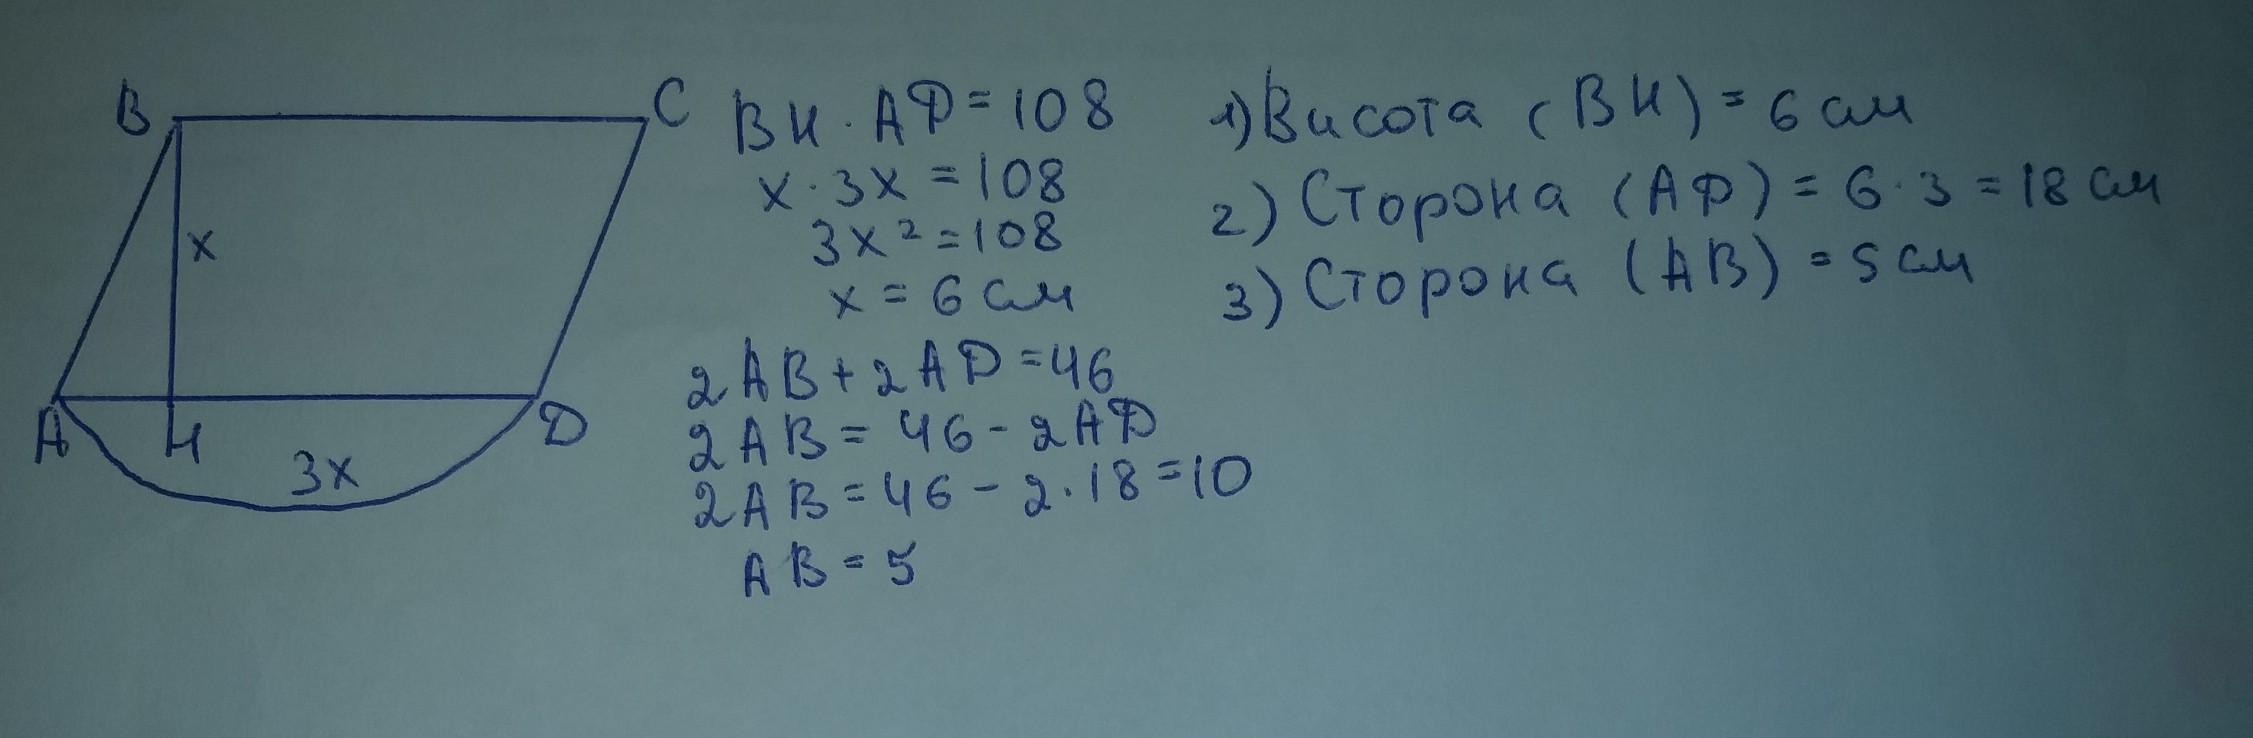 B
C
x
A
H
D
3x
BH · AD = 108
x · 3x = 108
3x² = 108
x = 6 см
2AB + 2AD = 46
2AB = 46 - 2AD
2AB = 46 - 2 · 18 = 10
AB = 5
1) Висота (BH) = 6 см
2) Сторона (AD) = 6 · 3 = 18 см
3) Сторона (AB) = 5 см